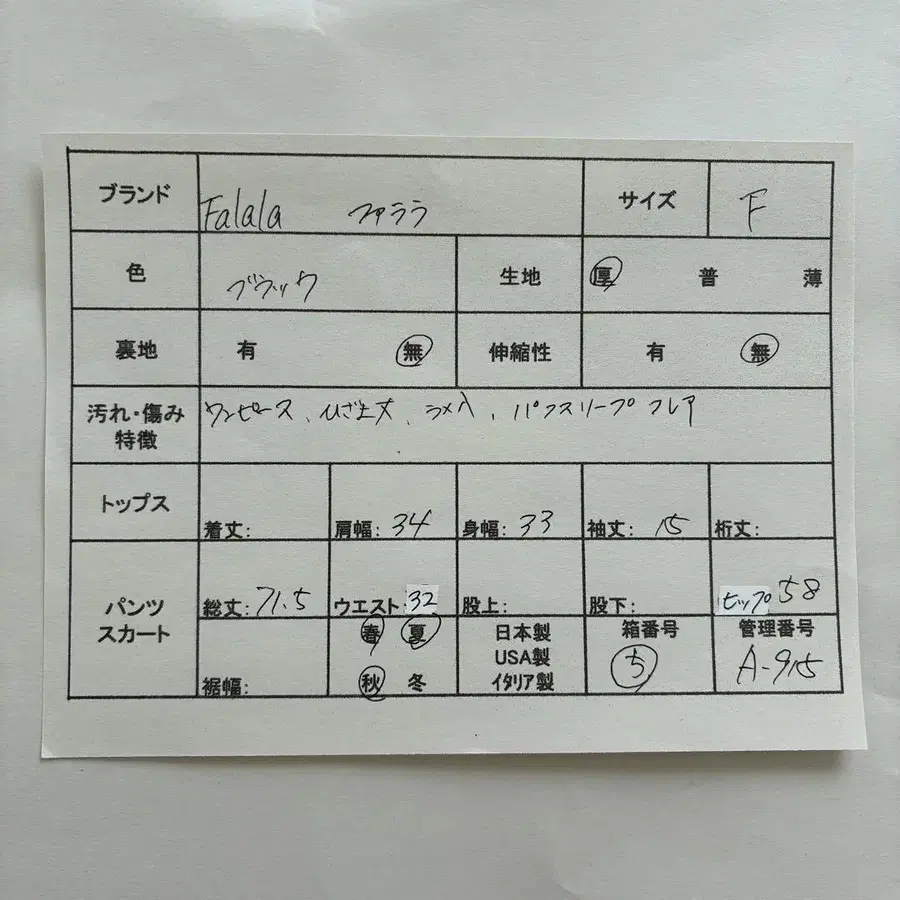 ブランド Falala ファララ サイズ F
色 ブラック 生地 厚 普 薄
裏地 有 無 伸縮性 有 無
汚れ・傷み
特徴
ワンピース、ひざ上丈、ラメ入、パフスリーブ フレア
トップス 着丈: 肩幅: 34 身幅: 33 袖丈: 15 裄丈:
パンツ
スカート
総丈: 71.5 ウエスト: 32 股上: 股下: ヒップ 58
裾幅:
春 夏
秋 冬
日本製
USA製
イタリア製
箱番号
ち
管理番号
A-915